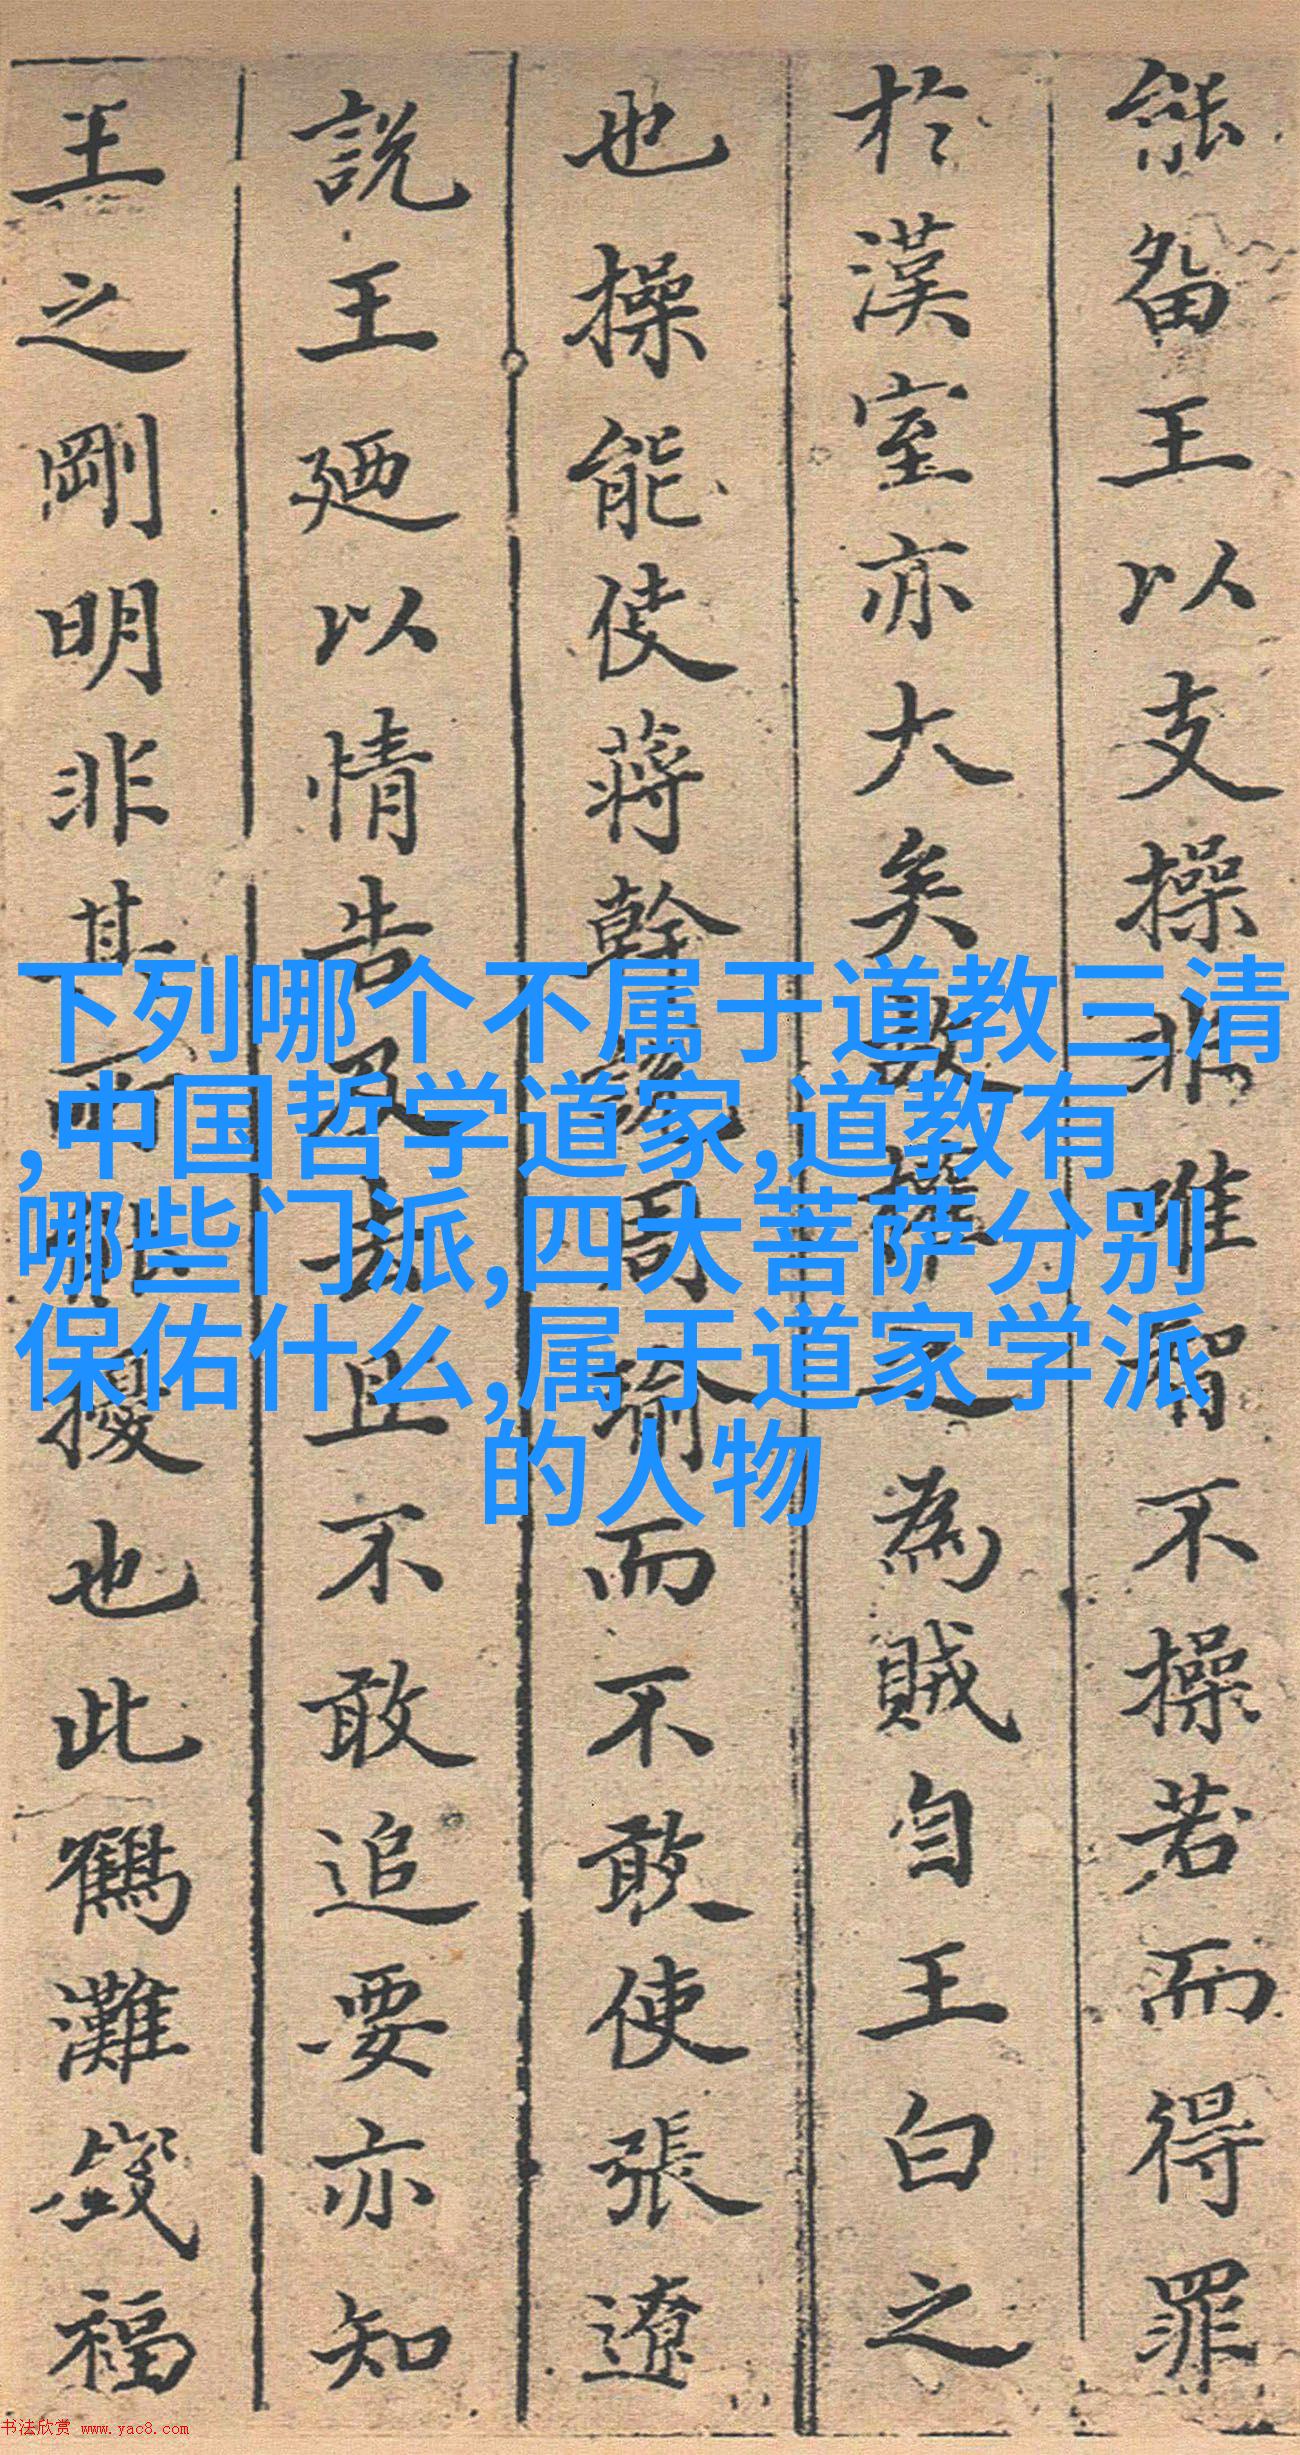 下列哪个不属于道教三清
,中国哲学道家,道教有
哪些门派,四大菩萨分别
保佑什么,属于道家学派
的人物
能留王以支操非唯智不操若而得罪
於漢室亦大矣操之為賊自王白之
也操能使蔣幹說周瑜而不敢使張遼
說王廼以情告及去且不敢追要亦知
王之剛明非其所能擾也此鶴灘福
书法欣赏 www.yac8.com